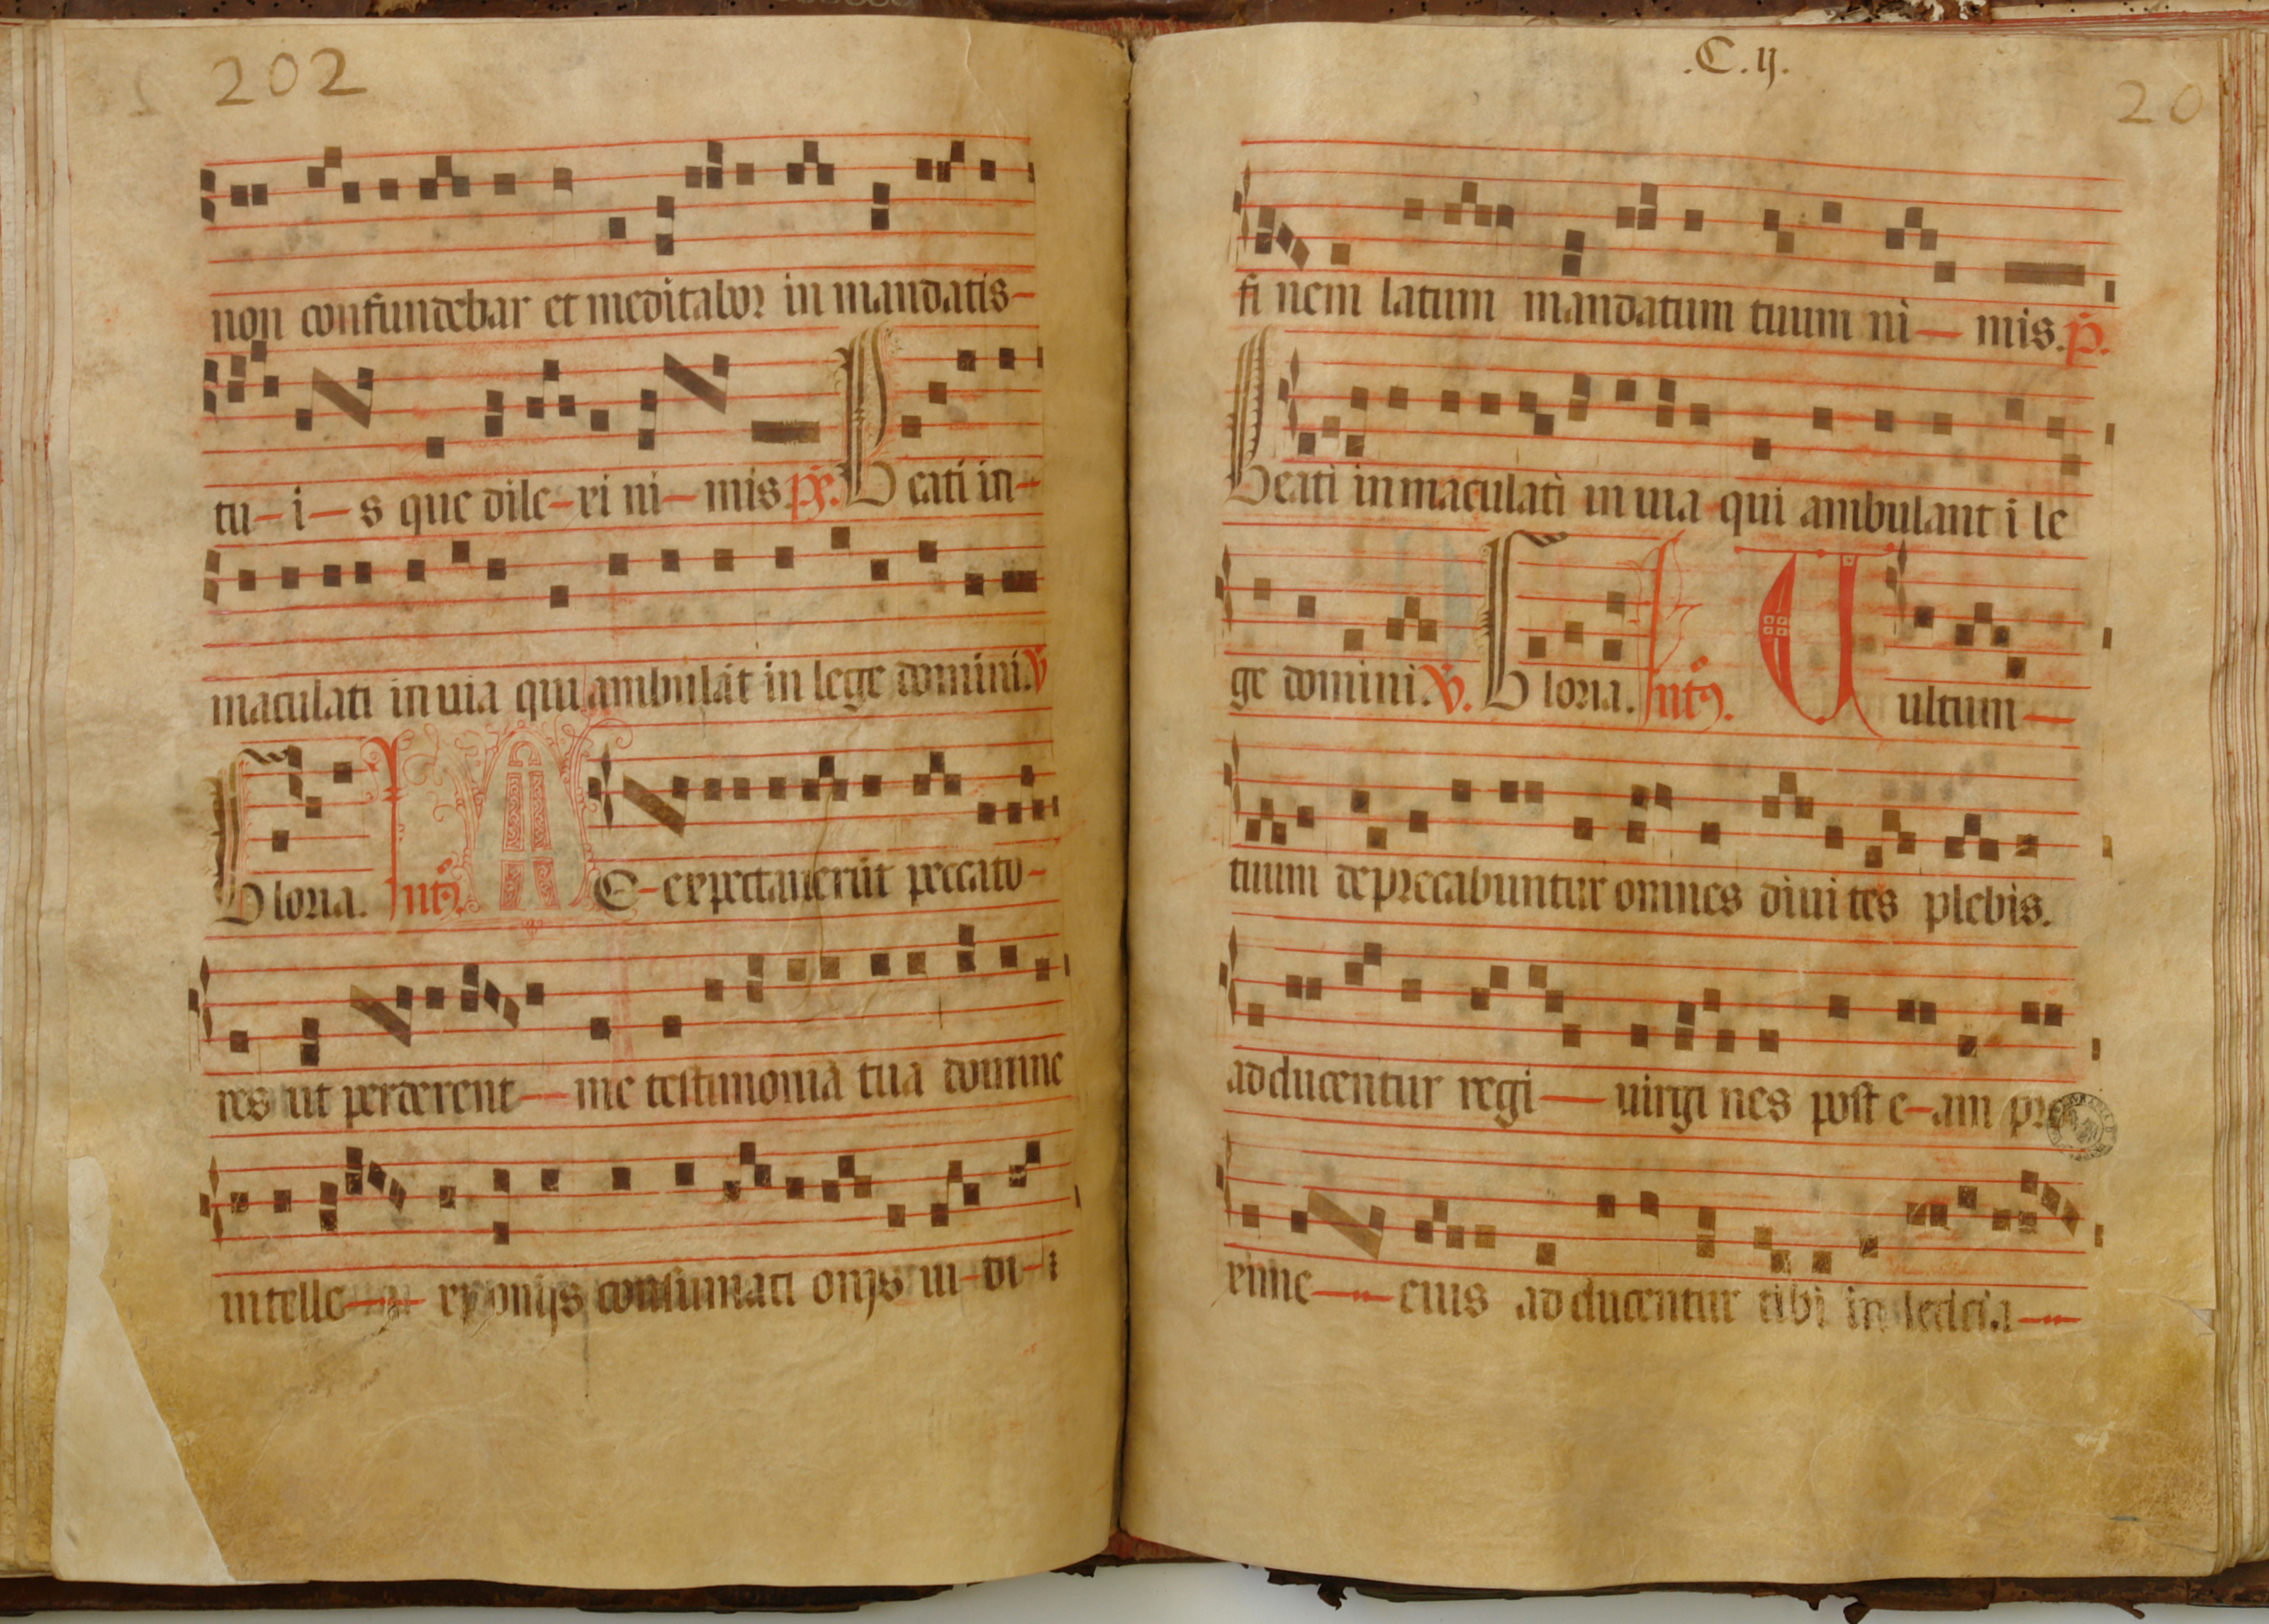 202
non confundebar et meditabor in mandatis-
tu-i-s que dile-xi ni-mis. ps. Beati in-
maculati in uia qui ambulāt in lege domini. V
Gloria. Intꝰ. ME-expectauerūt peccato-
res ut perderent-me testimonia tua domine
intelle-xi omnis consumati onis ui-di-
.C.ij.
20
fi nem latum mandatum tuum ni-mis. p.
Beati inmaculati in uia qui ambulant i le
ge domini. V. Gloria. Intꝰ. Uultum-
tuum deprecabuntur omnes diuites plebis.
adducentur regi-uirgines post e-am pro
xime-eius adducentur tibi in leticia-